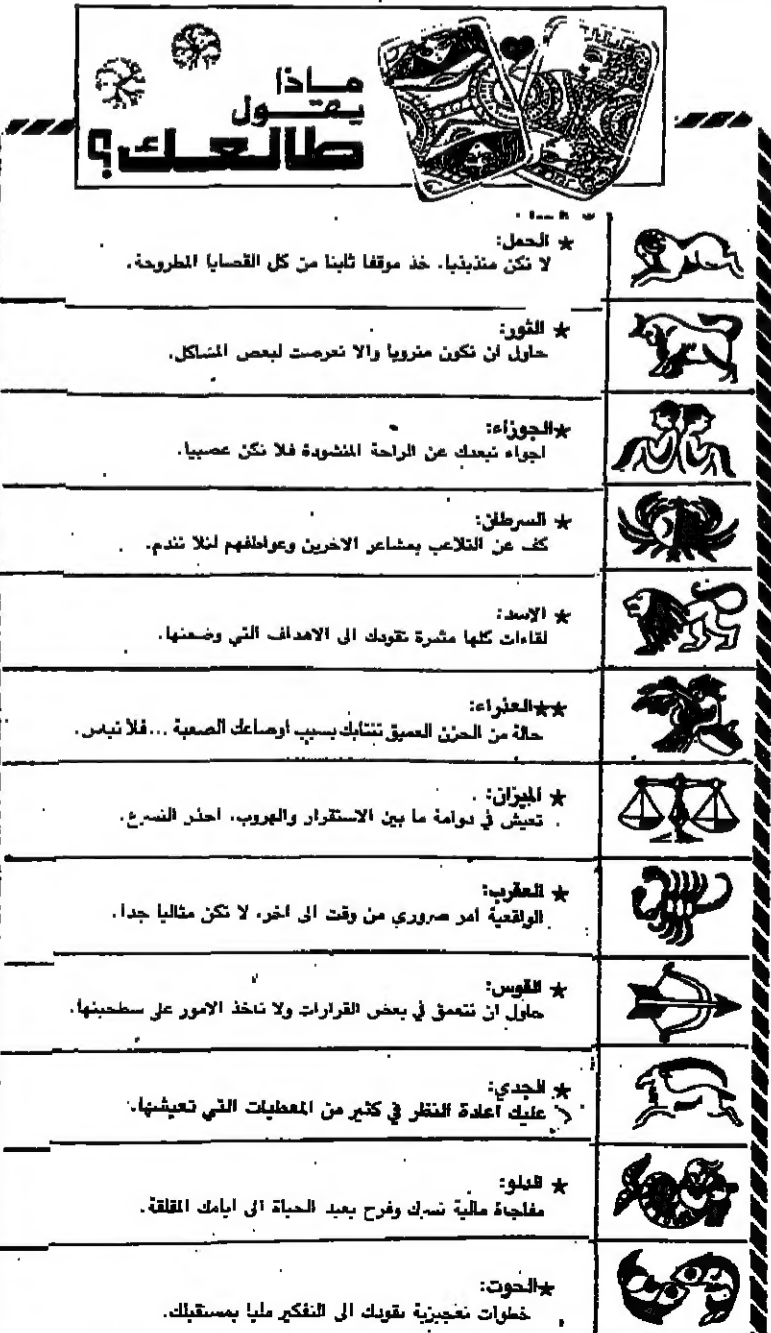 ماذا
يقول
طالعك؟
★ الحمل:
لا تكن متذبذبا. خذ موقفا ثابتا من كل القضايا المطروحة.
★ الثور:
حاول ان تكون مترويا والا تعرضت لبعض المشاكل.
★الجوزاء:
اجواء تبعدك عن الراحة المنشودة فلا تكن عصبيا.
★ السرطان:
كف عن التلاعب بمشاعر الاخرين وعواطفهم لئلا تندم.
★ الاسد:
لقاءات كلها مثمرة تقودك الى الاهداف التي وضعتها.
★★العذراء:
حالة من الحزن العميق تنتابك بسبب أوضاعك الصعبة ... فلا تيأس.
★ الميزان:
تعيش في دوامة ما بين الاستقرار والهروب. احذر التسرع.
★ العقرب:
الواقعية أمر ضروري من وقت الى اخر، لا تكن مثاليا جدا.
★ القوس:
حاول ان تتعمق في بعض القرارات ولا تاخذ الامور على سطحيتها.
★ الجدي:
عليك اعادة النظر في كثير من المعطيات التي تعيشها.
★ الدلو:
مفاجاة مالية تسرك وفرح يعيد الحياة الى ايامك المقلقة.
★الحوت:
خطوات تعجيزية تقودك الى التفكير مليا بمستقبلك.